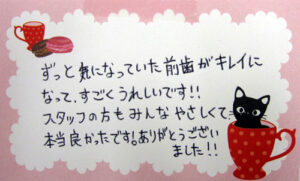 ずっと気になっていた前歯がキレイに
なって、すごくうれしいです!!
スタッフの方もみんなやさしくて
本当良かったです。ありがとうござい
ました!!